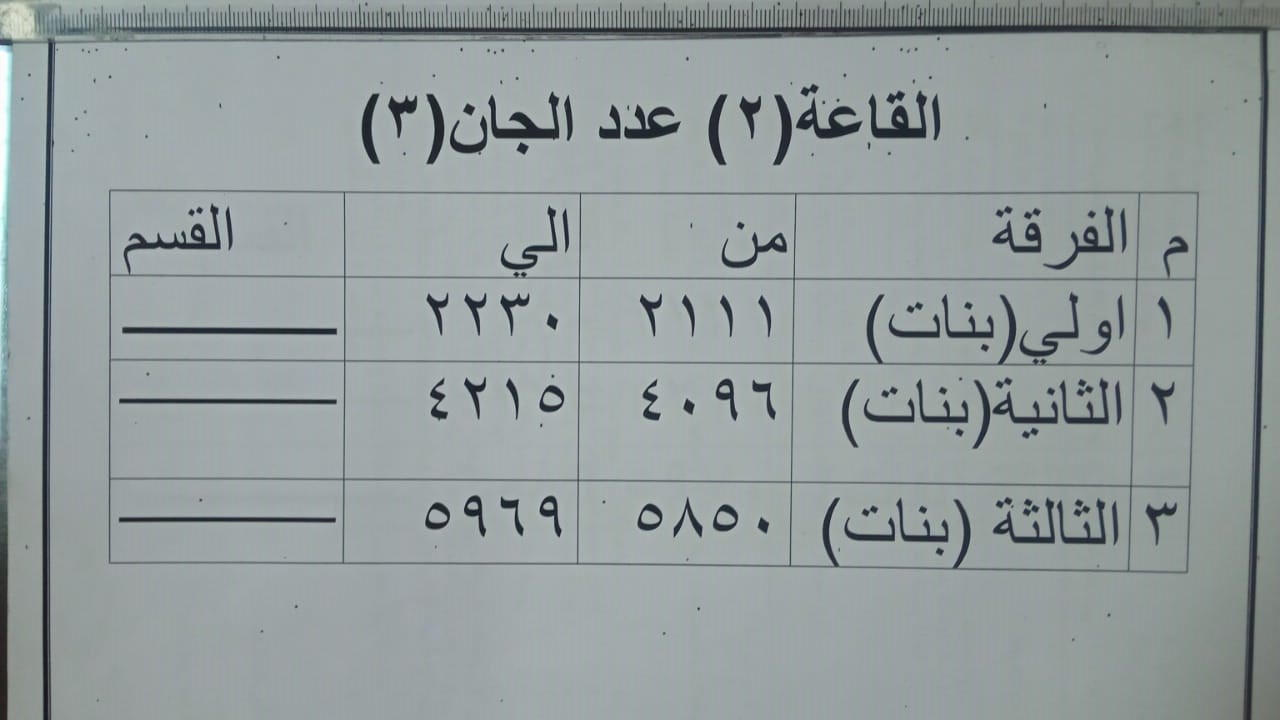 القاعة(٢) عدد الجان(٣)
م الفرقة من الي القسم
١ اولي(بنات) ٢١١١ ٢٢٣٠
٢ الثانية(بنات) ٤٠٩٦ ٤٢١٥
٣ الثالثة (بنات) ٥٨٥٠ ٥٩٦٩